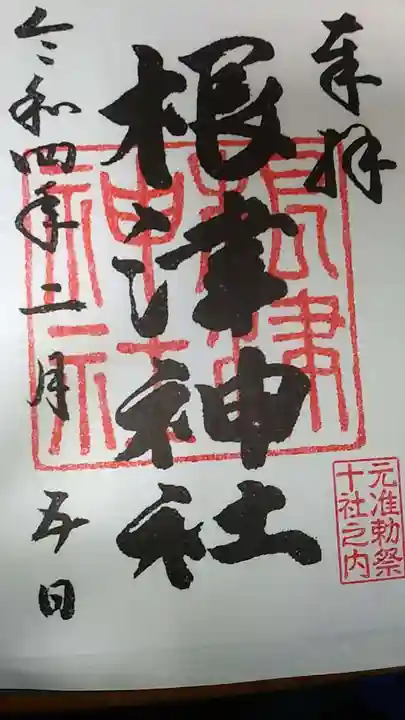 奉拝
元准勅祭
十社之内
根津神社
根津
神社
令和四年二月五日